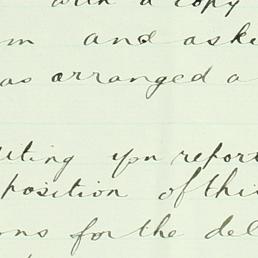 with a copy
m and aske
as arranged a
iting ypn report
position of this
ons for the del